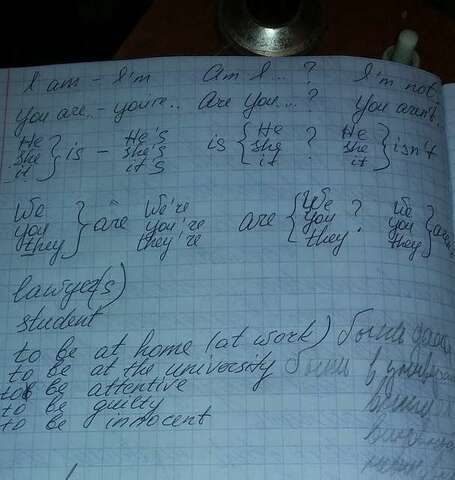 I am – I'm Am I...? I'm not.
you are – you're.. Are you...? You aren't.
He
she } is –
it
He's
she's
it's
is { He
she ?
it
He
she } isn't
it
We
you } are
they
We're
you're
they're
are { We
you ?
they
We
you }
they
lawyer(s)
student
to be at home (at work) быть дома
to be at the university быть в
to be attentive
to be guilty
to be innocent